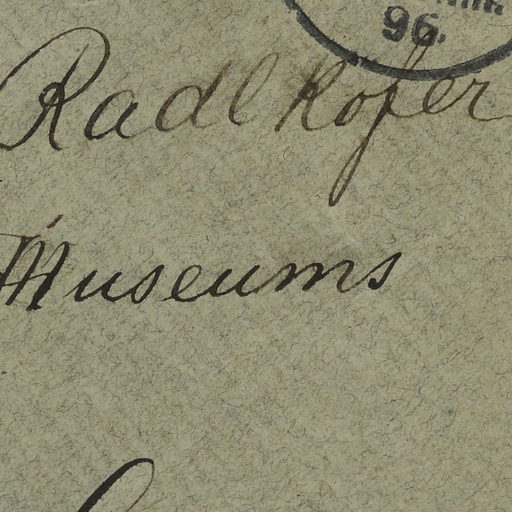 96.
Radlkofer
Museums